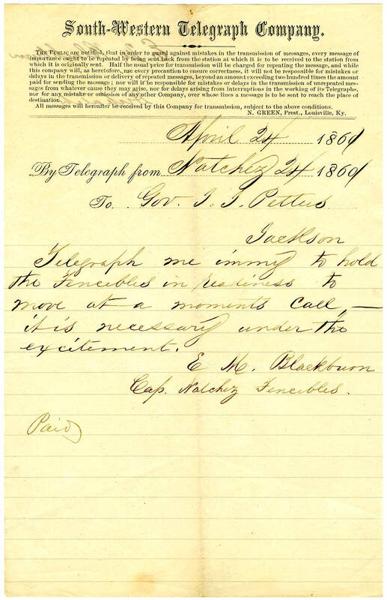 South-Western Telegraph Company.
The Public are notified, that in order to guard against mistakes in the transmission of messages, every message of
importance ought to be repeated by being sent back from the station at which it is to be received to the station from
which it is originally sent. Half the usual price for transmission will be charged for repeating the message, and while
this company will, as heretofore, use every precaution to ensure correctness, it will not be responsible for mistakes or
delays in the transmission or delivery of repeated messages, beyond an amount exceeding two hundred times the amount
paid for sending the message; nor will it be responsible for mistakes or delays in the transmission of unrepeated mes-
sages from whatever cause they may arise, nor for delays arising from interruptions in the working of its Telegraphs,
nor for any mistake or omission of any other Company, over whose lines a message is to be sent to reach the place of
destination.
All messages will hereafter be received by this Company for transmission, subject to the above conditions.
N. GREEN, Prest., Louisville, Ky.
April 24 1861
By Telegraph from Natchez 24 1861
To Gov. J. J. Pettus
Jackson
Telegraph me immy to hold
the Fencibles in readiness to
move at a moments call,—
it is necessary under the
excitement.
E M. Blackburn
Cap. Natchez Fencibles.
Paid